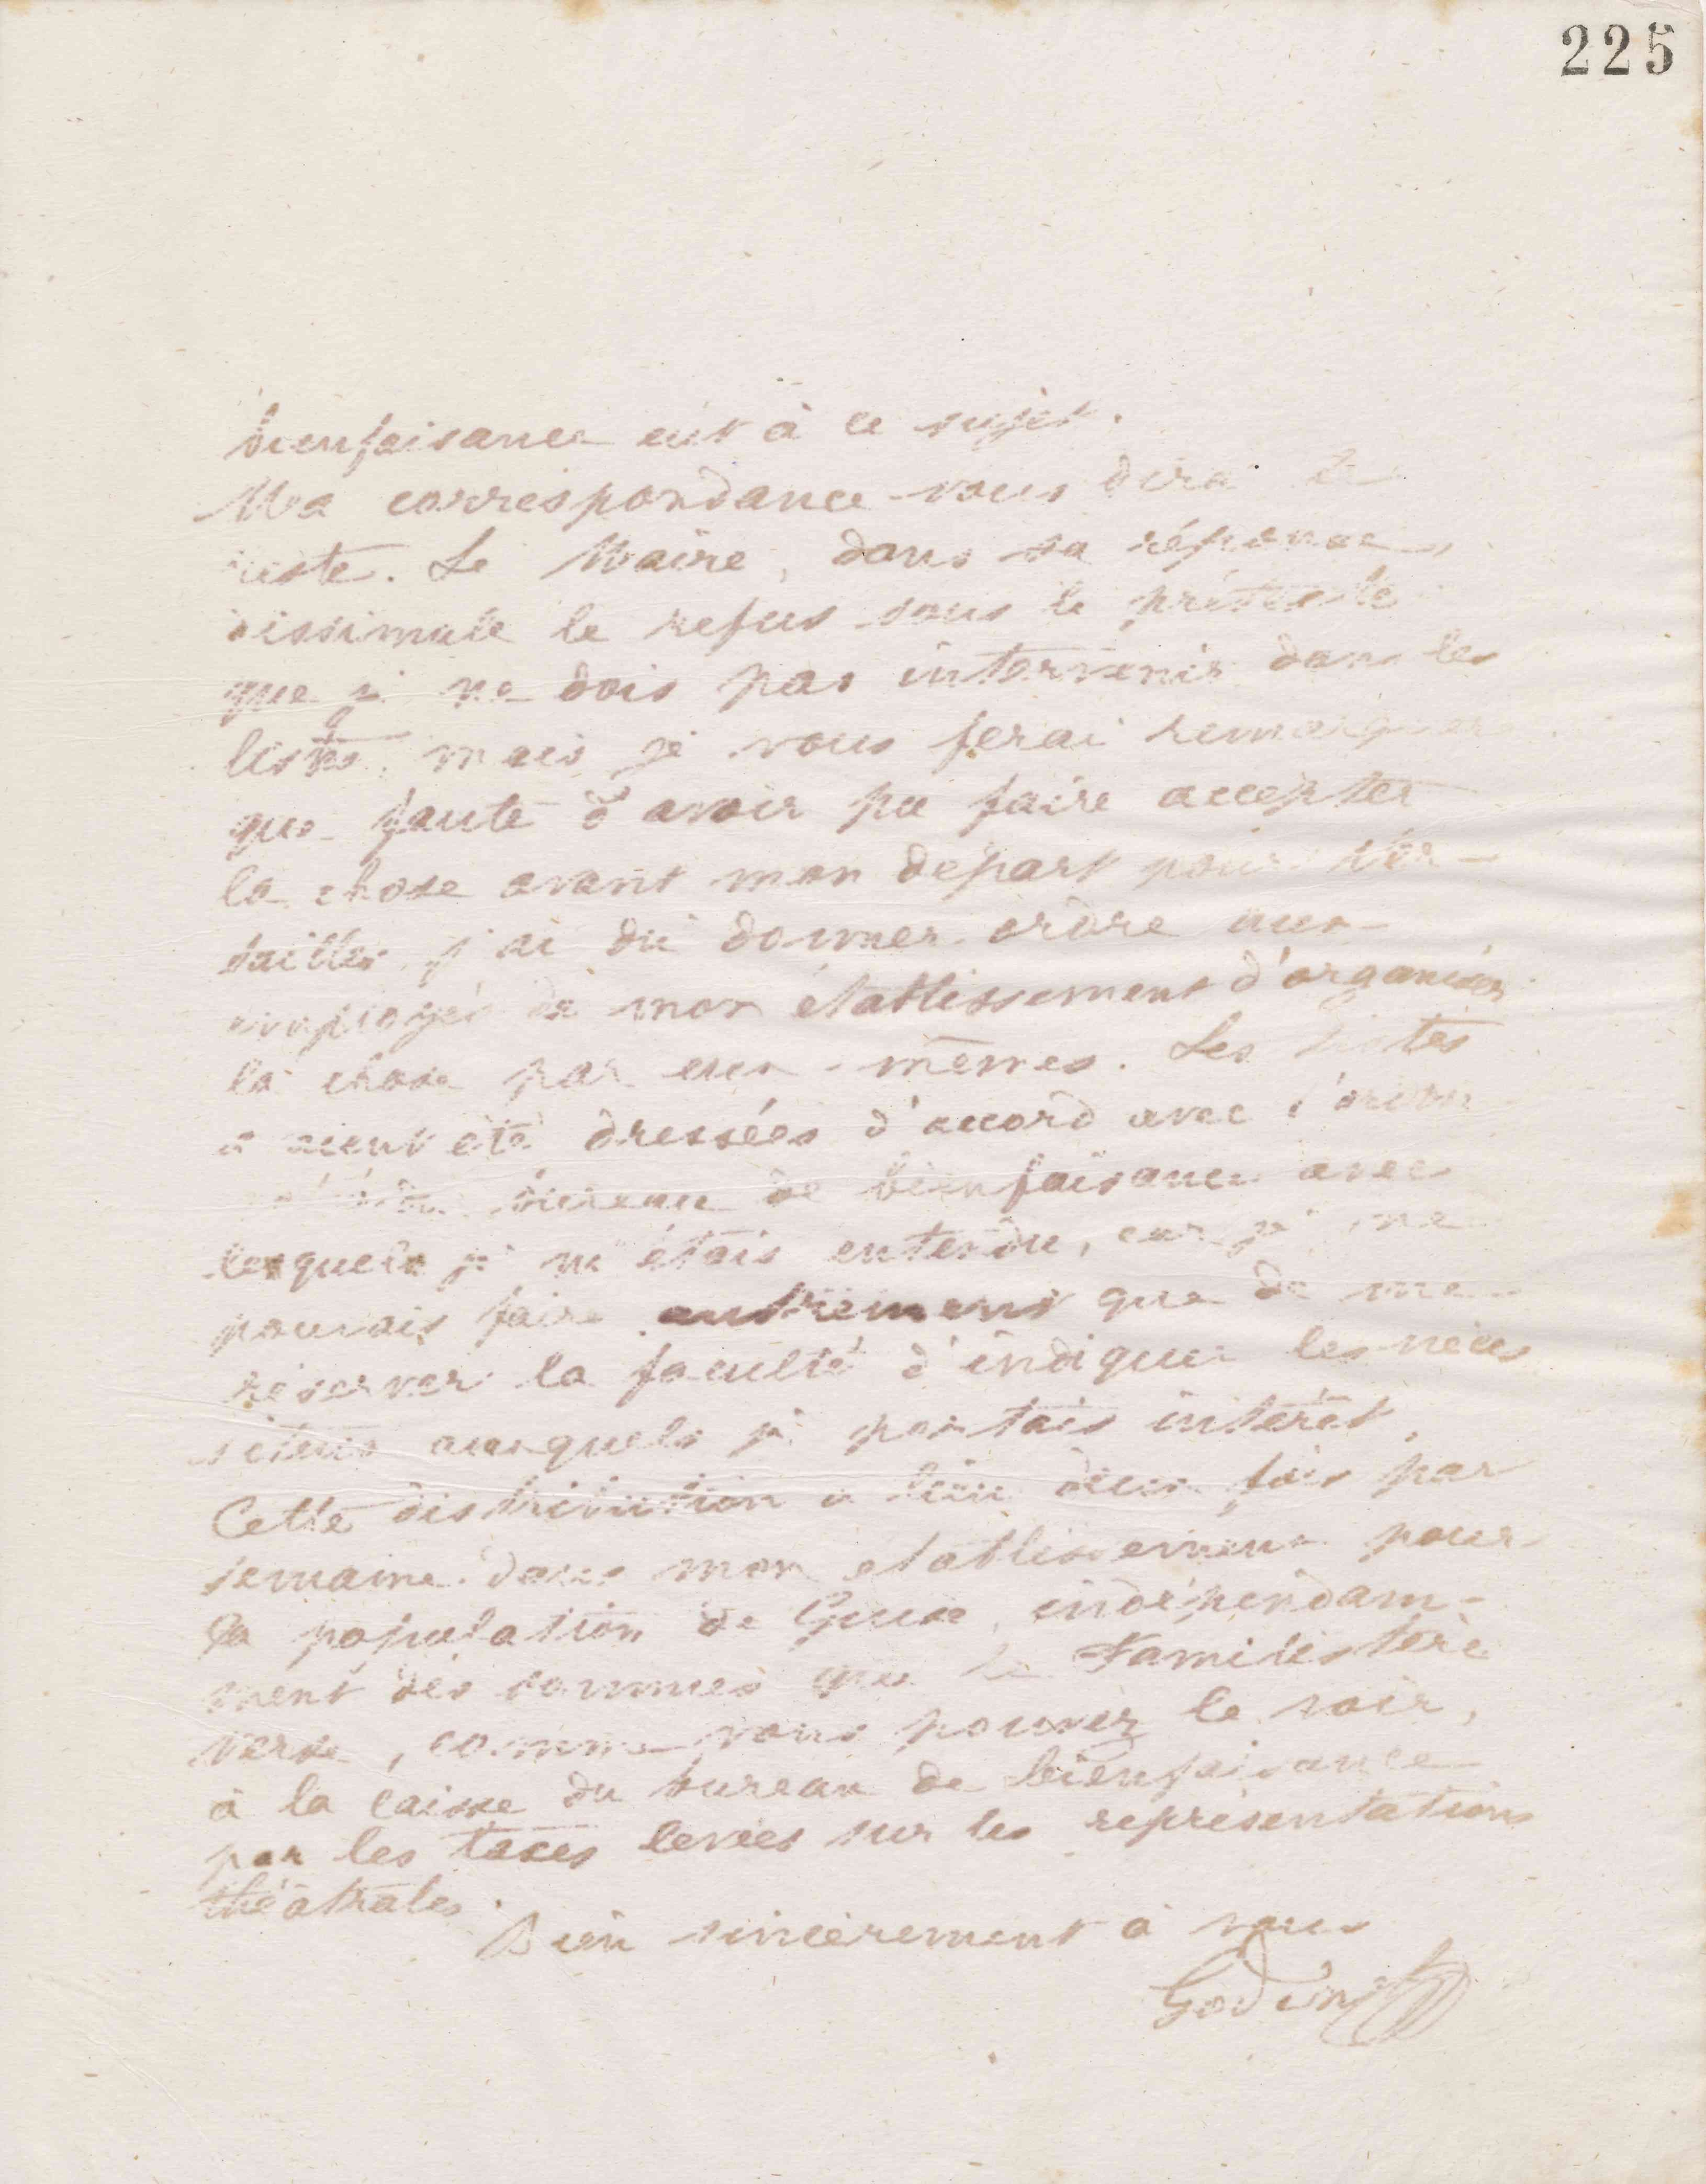 225
bienfaisance eut à ce sujet.
Ma correspondance vous dira le
reste. Le Maire, dans sa réponse
dissimule le refus sous le prétexte
que je ne dois pas intervenir dans les
listes, mais je vous ferai remarquer
que faute d'avoir pu faire accepter
la chose avant mon départ pour Ver-
sailles j'ai dû donner ordre aux
employés de mon établissement d'organiser
la chose par eux-mêmes. Les listes
avaient été dressées d'accord avec
bureau de bienfaisance avec
lesquels je m'étais entendu, car je ne
pouvais faire autrement que de me
réserver la faculté d'indiquer les néces
siteux auxquels je portais intérêt.
Cette distribution a lieu deux fois par
semaine dans mon établissement pour
la population de Guise, indépendam-
ment des sommes que le Familistère
verse, comme vous pouvez le voir,
à la caisse du bureau de bienfaisance
par les taxes levées sur les représentations
théâtrales.
Bien sincèrement à vous
Godin